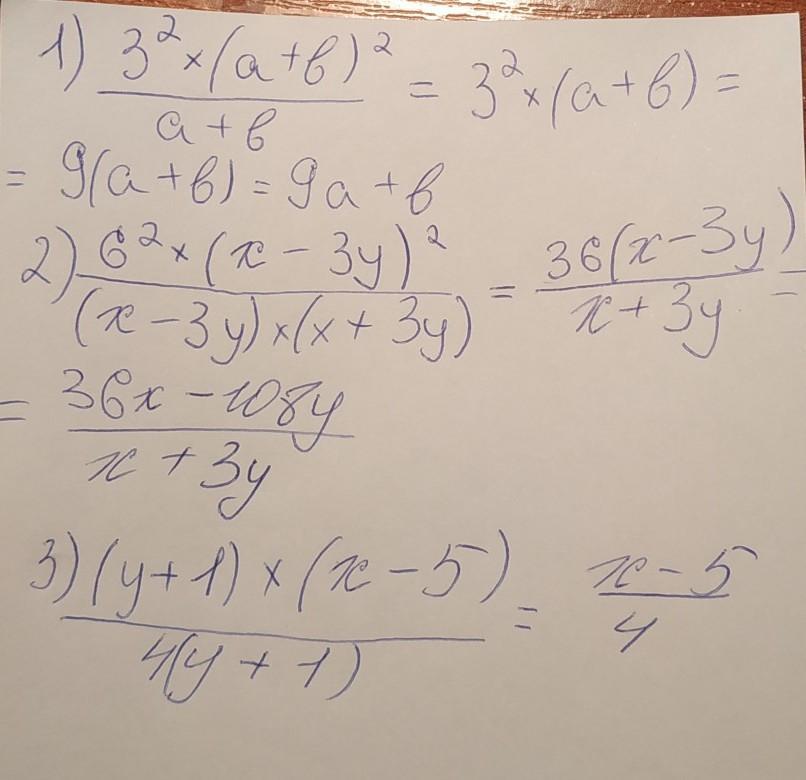 1) 3² × (a + b)² / a + b = 3² × (a + b) =
= 9(a + b) = 9a + b
2) 6² × (x − 3y)² / (x − 3y) × (x + 3y) = 36(x − 3y) / x + 3y =
= 36x − 108y / x + 3y
3) (y + 1) × (x − 5) / 4(y + 1) = x − 5 / 4